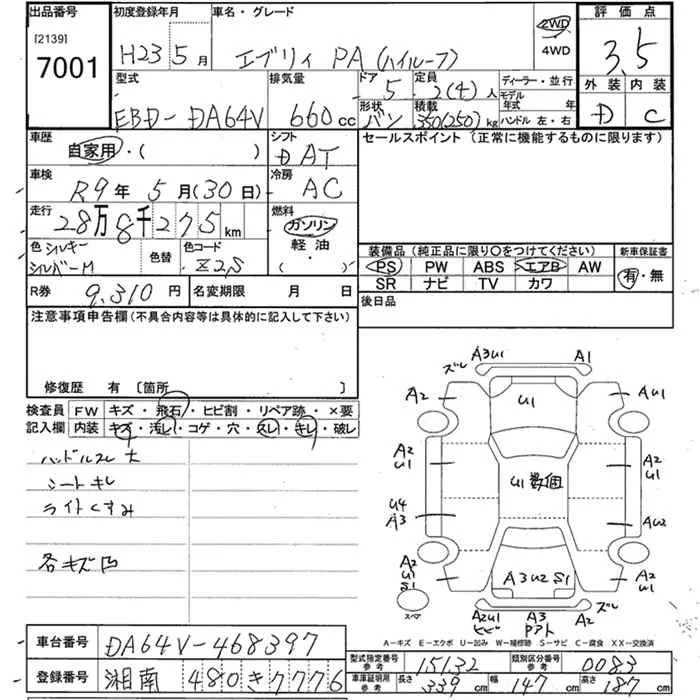 出品番号 初度登録年月 車名・グレード 2WD 評価点
[2139] 7001 H23 5月 エブリィ PA (ハイルーフ) 4WD 3.5
型式 排気量 ドア 定員 ディーラー・並行 外装 内装
EBD-DA64V 660cc 5 2(4)人 モデル年式 年 D C
形状 積載 ハンドル 左・右
バン 350(250)kg
車歴 シフト セールスポイント (正常に機能するものに限ります)
自家用・( ) DAT
車検 R9年5月(30日) 冷房 AC
走行 28万8千275km 燃料 ガソリン
軽油
( )
色 シルキーシルバーM 色替 色コード Z2S
装備品 (純正品に限り○をつけてください) 新車保証書
PS PW ABS エアB AW 有・無
SR ナビ TV カワ
R券 9,310円 名変期限 月 日 後日品
注意事項申告欄 (不具合内容等は具体的に記入して下さい)
修復歴 有 [箇所 ]
検査員 FW キズ・飛石・ヒビ割・リペア跡・×要
記入欄 内装 キズ・汚レ・コゲ・穴・スレ・キレ・破レ
ハンドルスレ大
シートキレ
ライトくすみ
各キズ凹
ズレ A3U1 A1
A2 U1 AU1
A2 U1 U1数個 A2 U1
U4 A3 AU2
A2 U1 S1 A3U2S1 A2
スペア A2U1 ヒビ A3 Pアト A2 ズレ
A-キズ E-エクボ U-凹み W-補修跡 S-サビ C-腐食 XX-交換済
車台番号 DA64V-468397
登録番号 湘南 480 き 7776
型式指定番号 参考 15132 類別区分番号 参考 0083
車庫証明用 参考 長さ 339cm 幅 147cm 高さ 187cm